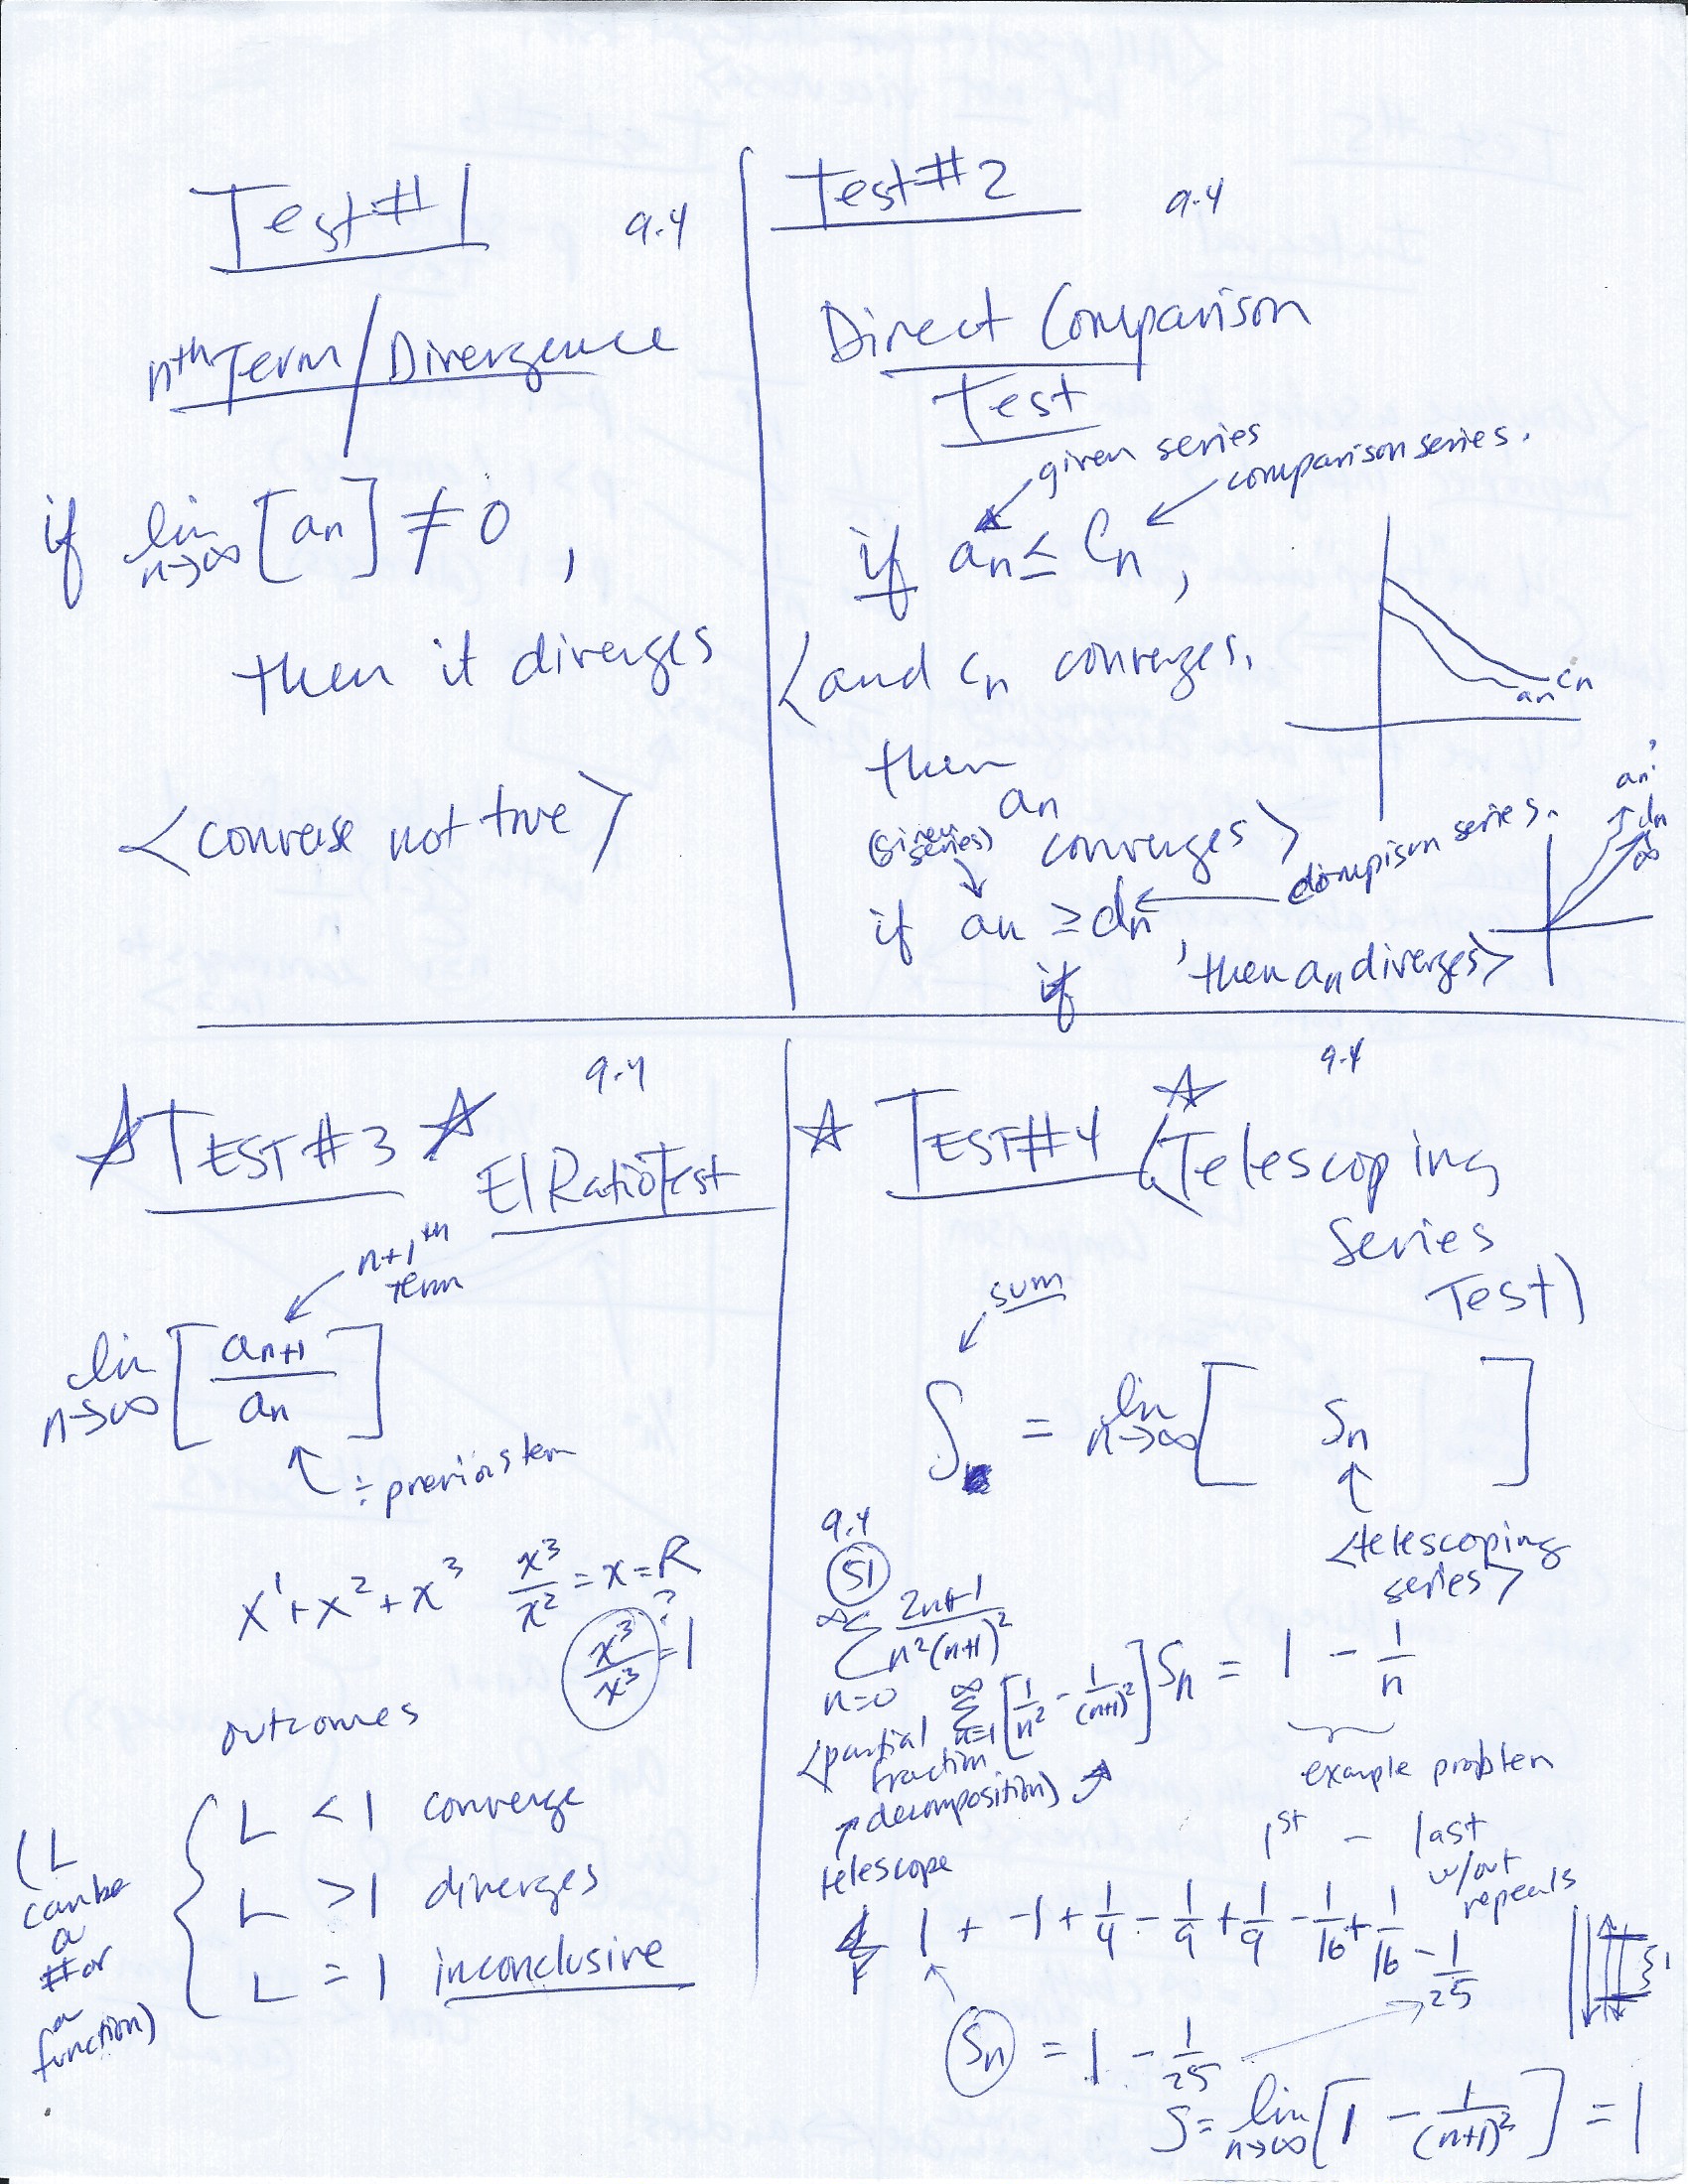 Test #1 9.4
nth Term / Divergence
if lim n→∞ [an] ≠ 0,
then it diverges
<converse not true>
Test #2 9.4
Direct Comparison
Test
given series
comparison series.
if an ≤ Cn,
<and cn converges,
then
an
converges>
cn
an
(given series)
comparison series.
if an ≥ dn
, then an diverges>
if
an
dn
∞
☆ TEST #3 ☆ 9.4
El Ratio Test
n+1th
term
lim n→∞ [an+1 / an]
÷ previous term
x^1 + x^2 + x^3 x^3/x^2 = x = R
?
x^3/x^3 = 1
outcomes
L < 1 converge
L > 1 diverges
L = 1 inconclusive
(L
can be
a
# or
a
function)
☆ TEST #4 ☆ (Telescoping 9.4
Series
Test)
sum
S = lim n→∞ [ Sn ]
<telescoping
series>
9.4
51
∞ Σ n=0 2n+1 / n^2(n+1)^2
∞ Σ n=1 [1/n^2 - 1/(n+1)^2] Sn = 1 - 1/n
<partial
fraction
decomposition)
telescope
example problem
1st - last
w/out
repeals
1 + -1 + 1/4 - 1/9 + 1/9 - 1/16 + 1/16 - 1/25
Sn = 1 - 1/25
S = lim n→∞ [1 - 1/(n+1)^2] = 1